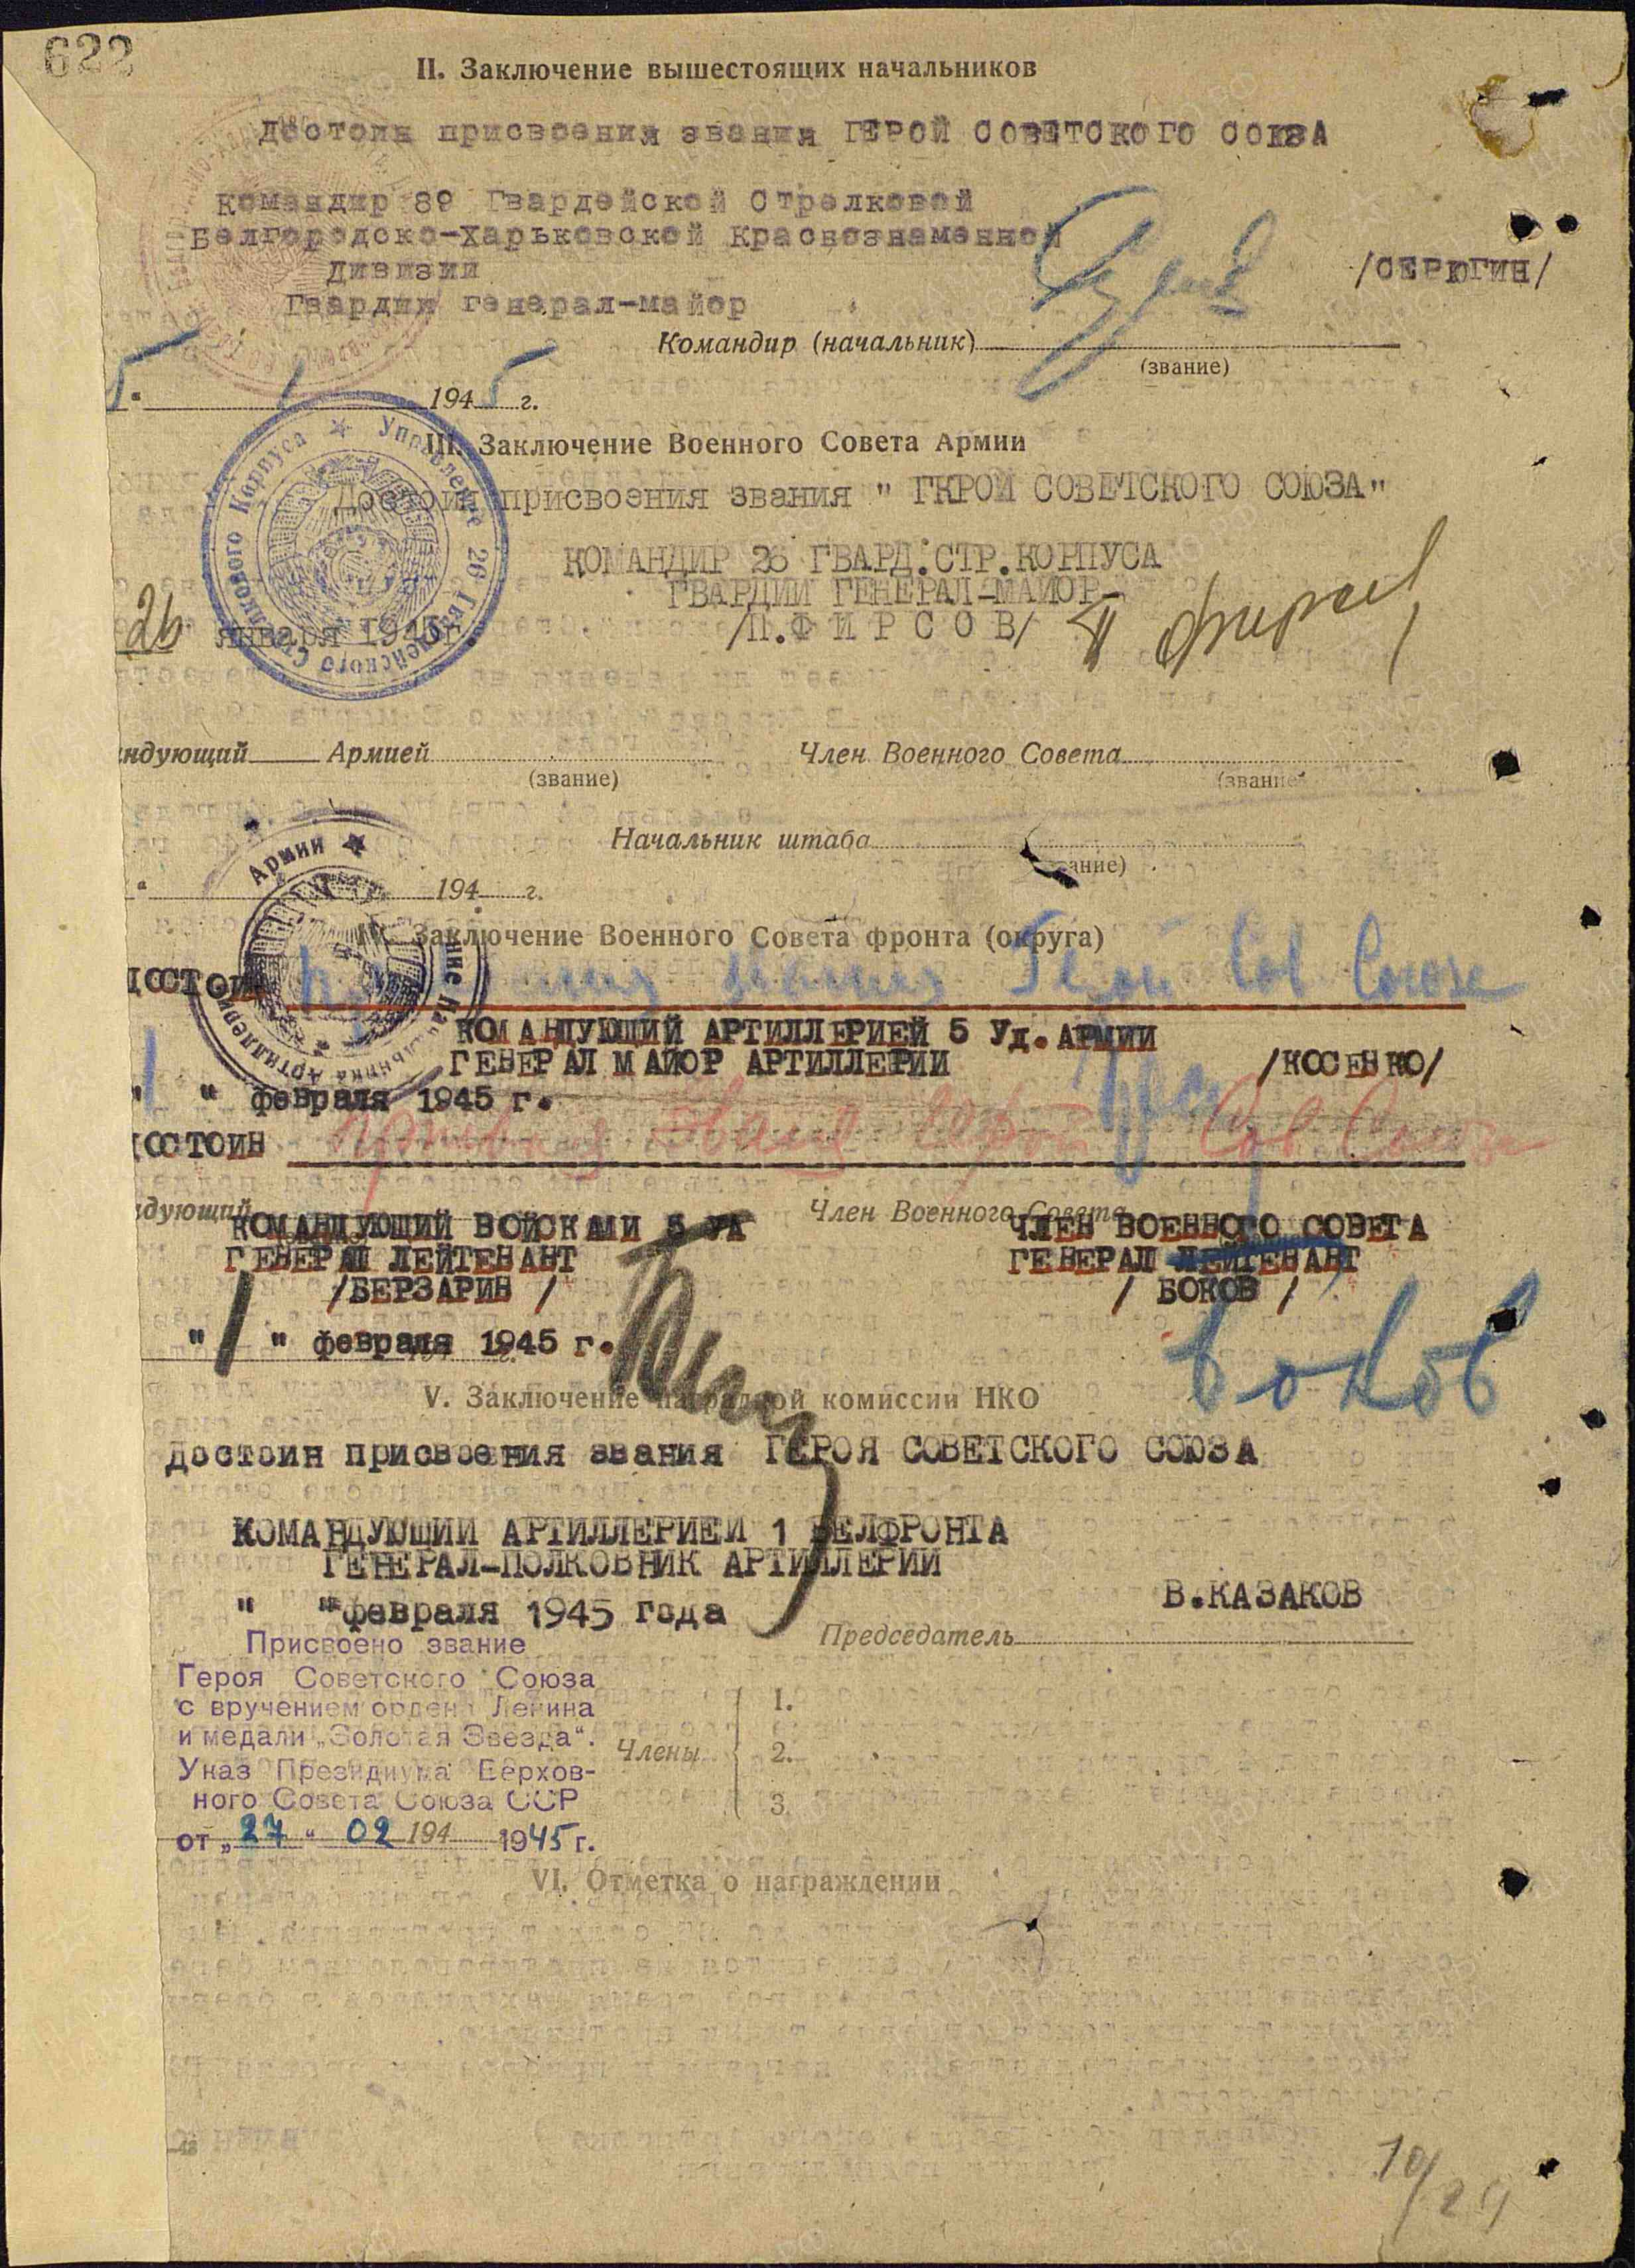 622
II. Заключение вышестоящих начальников
достоин присвоения звания ГЕРОЙ СОВЕТСКОГО СОЮЗА
Командир 89 Гвардейской Стрелковой
Белгородско-Харьковской Краснознаменной
дивизии
Гвардии генерал-майор
/СЕРЮГИН/
Командир (начальник)
(звание)
5 " 1 1945 г.
III. Заключение Военного Совета Армии
Достоин присвоения звания " ГКРОЙ СОВЕТСКОГО СОЮЗА"
КОМАНДИР 26 ГВАРД.СТР.КОРПУСА
ГВАРДИИ ГЕНЕРАЛ-МАЙОР
/П.ФИРСОВ/ П Фирсов
26 января 1945г.
Управление 26 Гвардейского Стрелкового Корпуса
ндующий Армией
Член Военного Совета
(звание)
(звание
Начальник штаба
ание)
" 194 г.
Армии
IV. Заключение Военного Совета фронта (округа)
достоин звания Герой Сов Союза
КОМАНДУЮЩИЙ АРТИЛЛЕРИЕЙ 5 Уд. АРМИИ
ГЕНЕРАЛ МАЙОР АРТИЛЛЕРИИ /КОСЕНКО/
" 1 " февраля 1945 г.
остоин присвоения звания Герой Сов Союза
дующий
Член Военного Совета
КОМАНДУЮЩИЙ ВОЙСКАМИ 5 УА
ГЕНЕРАЛ ЛЕЙТЕНАНТ
/БЕРЗАРИН /
ЧЛЕН ВОЕННОГО СОВЕТА
ГЕНЕРАЛ ЛЕЙТЕНАНТ
/ БОКОВ /
" 1 " февраля 1945 г.
Боков
V. Заключение наградной комиссии НКО
достоин присвоения звания ГЕРОЯ СОВЕТСКОГО СОЮЗА
КОМАНДУЮЩИЙ АРТИЛЛЕРИЕЙ 1 БЕЛФРОНТА
ГЕНЕРАЛ-ПОЛКОВНИК АРТИЛЛЕРИИ
В.КАЗАКОВ
" "февраля 1945 года
Председатель
Присвоено звание
Героя Советского Союза
с вручением ордена Ленина
и медали „Золотая Звезда“.
Указ Президиума Верхов-
ного Совета Союза ССР
от „27“ 02 194 1945 г.
Члены
1.
2.
3.
VI. Отметка о награждении
10/29